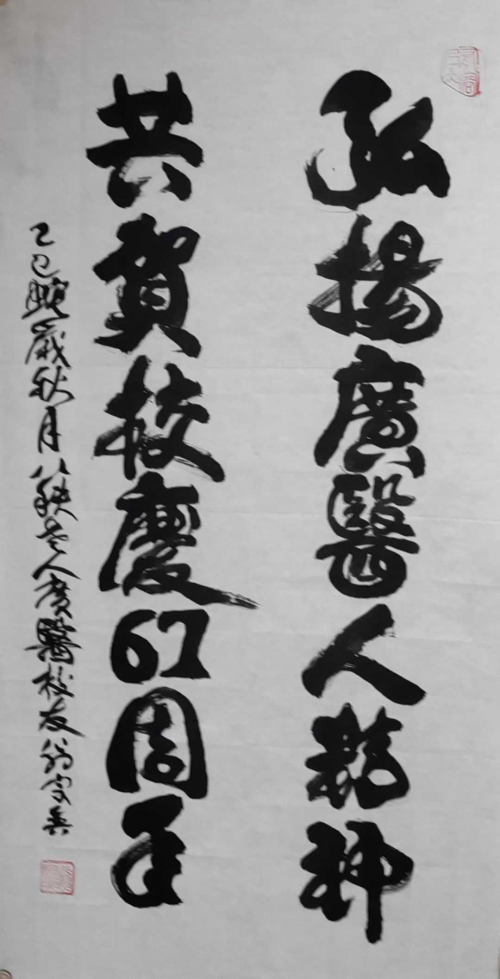 弘揚廣醫人精神
共賀校慶67周年
乙巳晚歲秋月八秩老人廣醫校友翁守兵